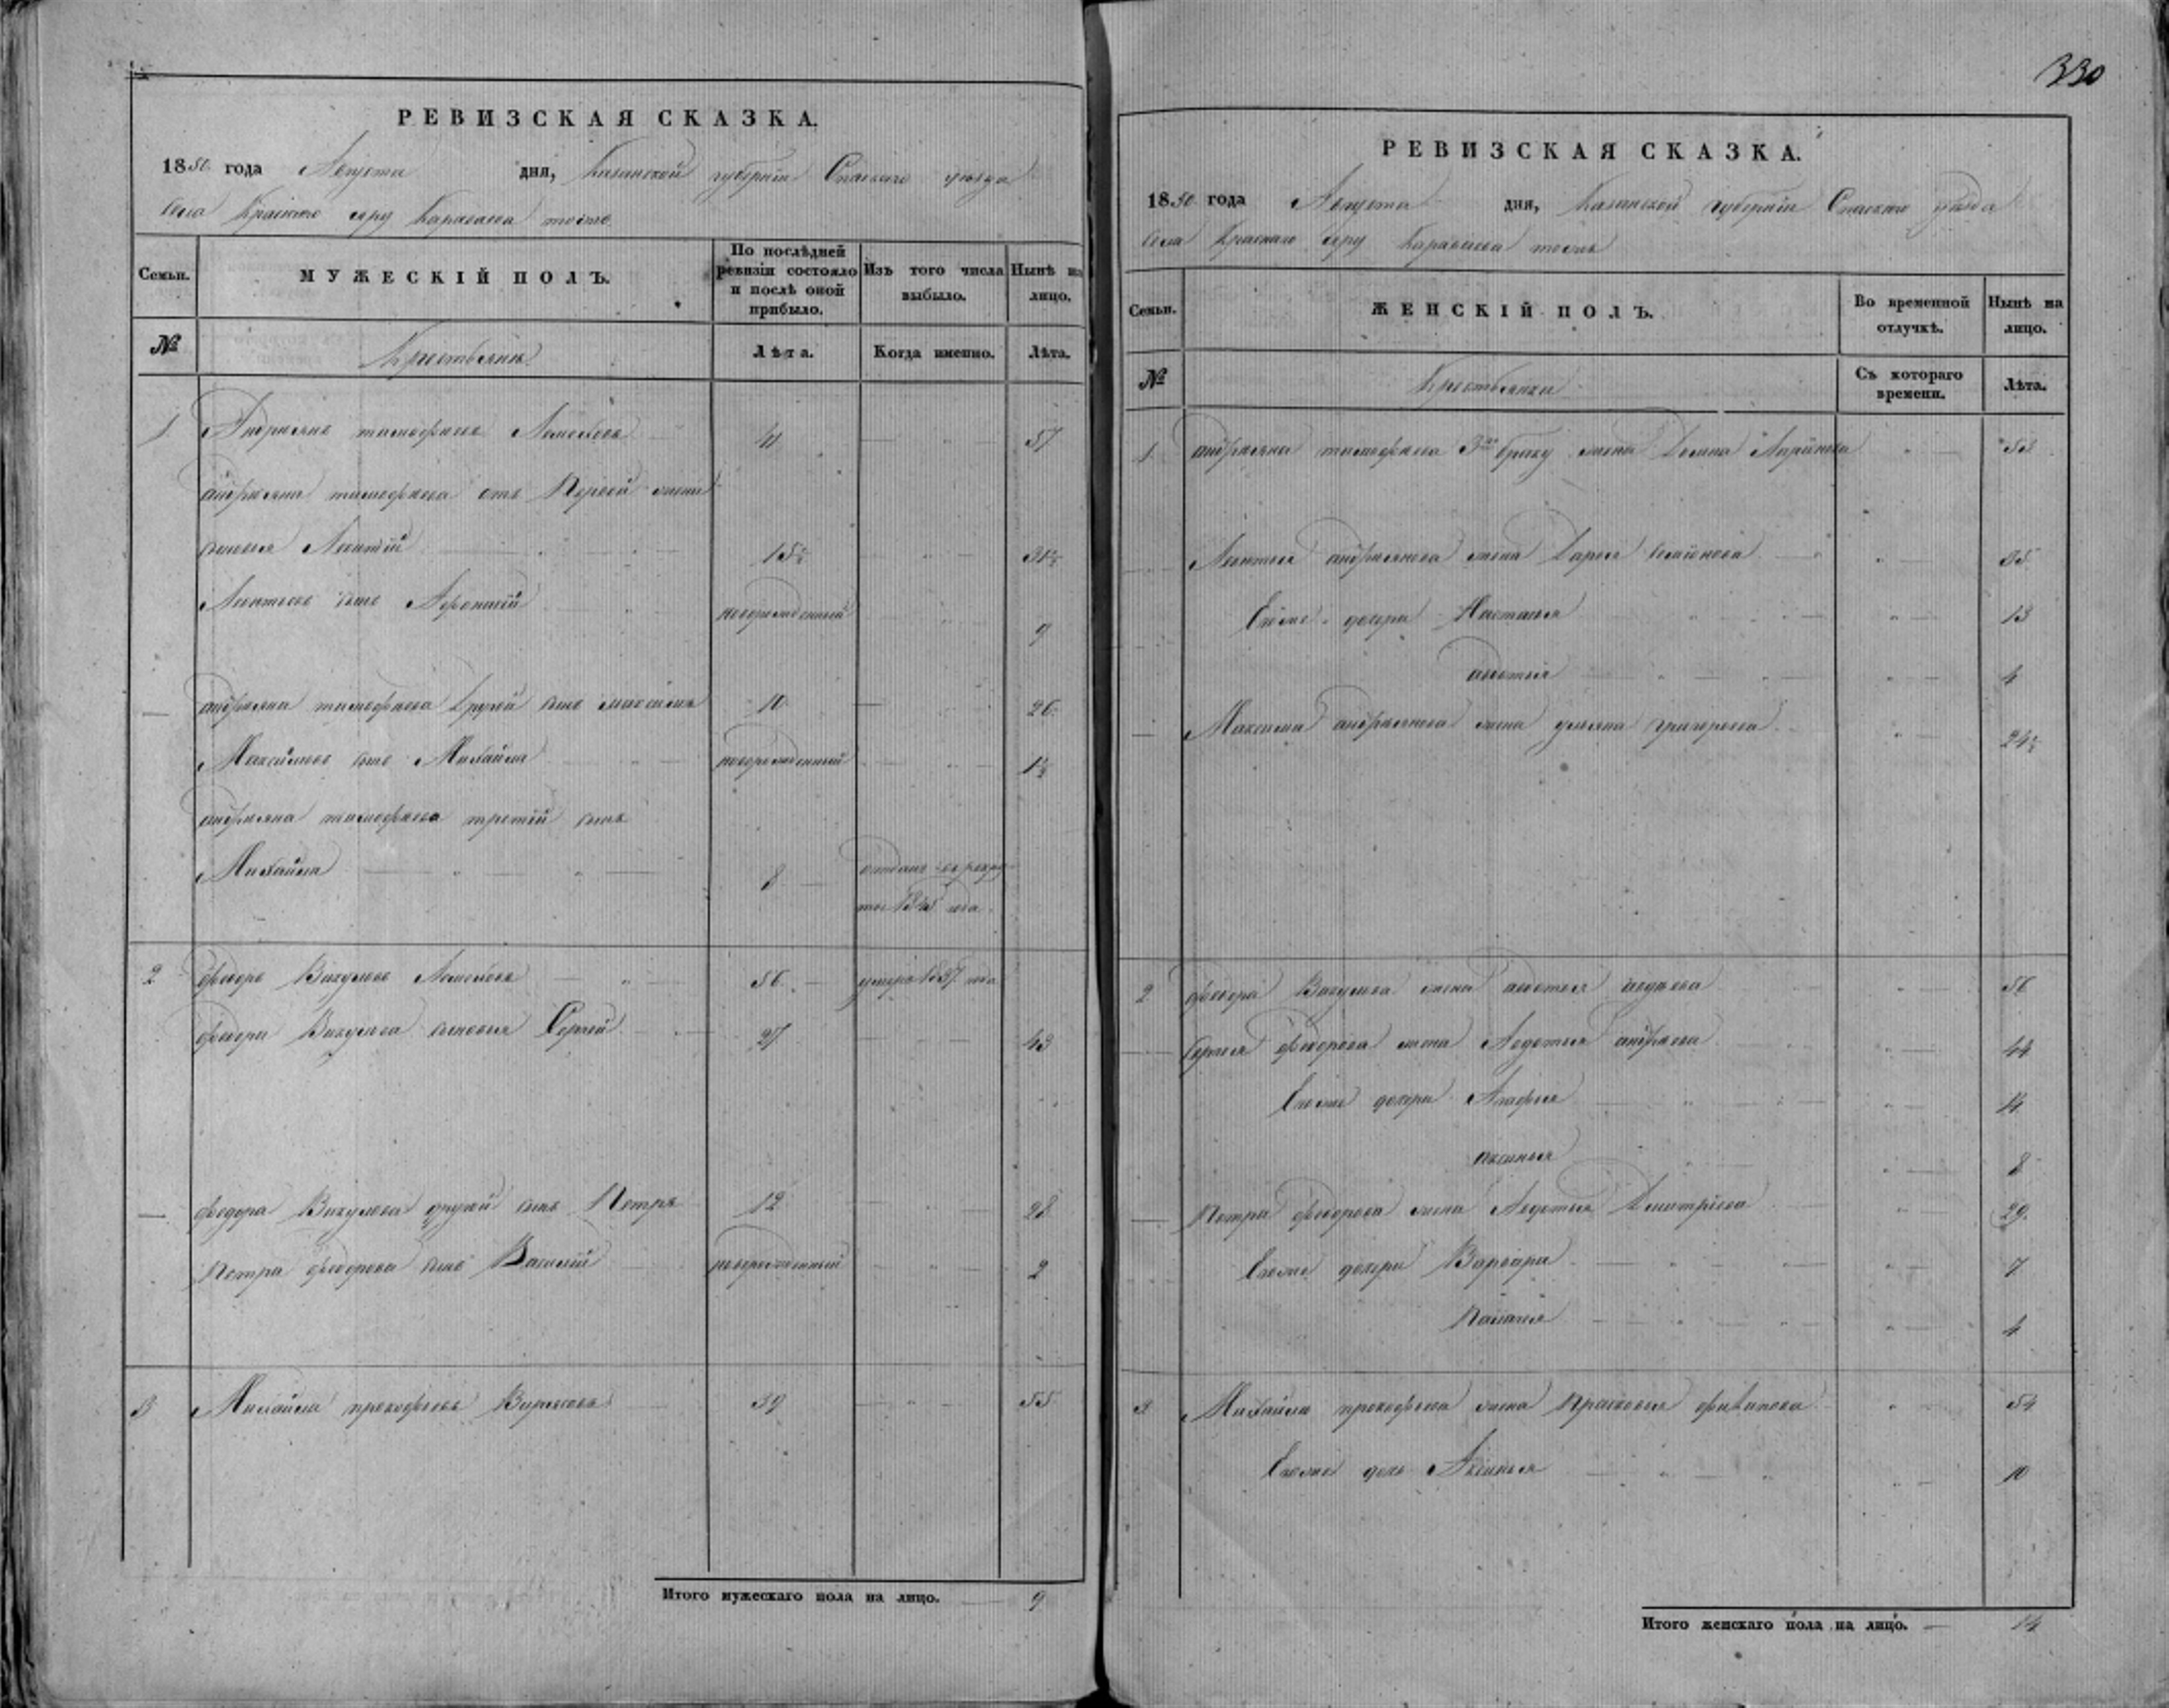 330
РЕВИЗСКАЯ СКАЗКА.
1850 года Августа дня, Казанской губернии Спаскаго уезда
Села Краснаго яру Караваева тожъ
Семьи. МУЖЕСКІЙ ПОЛЪ. По послѣдней ревизіи состояло и послѣ оной прибыло. Изъ того числа выбыло. Нынѣ на лицо.
№ Крестьяне Лѣта. Когда именно. Лѣта.
1 Андриянъ тимофеевъ 41 57
андрияна тимофеева отъ Первой жены
сыновья Леонтий 15½ 31½
Леонтьевъ сынъ Афонасий новорожденный 9
андрияна тимофеева другой сынъ максимъ 10 26
Максимовъ сынъ Михайла новорожденный 1½
андрияна тимофеева третий сынъ
Михайла 8 отданъ въ рекру
ты 1845 года
2 федоръ Викуловъ 56 умеръ 1837 года
федора Викулова сыновья Сергей 27 43
федора Викулова другой сынъ Петръ 12 28
Петра федорова сынъ Василий новорожденный 2
3 Михайла прокофьевъ 39 55
Итого мужескаго пола на лицо. 9
РЕВИЗСКАЯ СКАЗКА.
1850 года Августа дня, Казанской губернии Спаскаго уезда
Села Краснаго яру Караваева тожъ
Семьи. ЖЕНСКІЙ ПОЛЪ. Во временной отлучкѣ. Нынѣ на лицо.
№ Крестьянки Съ котораго времени. Лѣта.
1 андрияна тимофеева 3го браку жена Домна 53
Леонтья андриянова жена Дарья Семионова 35
Ево же дочери Настасья 13
авдотья 4
Максима андриянова жена ульяна григорьева 24½
2 федора Викулова жена авдотья 56
Сергея федорова жена Авдотья андреева 44
Ево же дочери Агафья 14
аксинья 8
Петра федорова жена Авдотья Дмитриева 29
Ево же дочери Варвара 7
Палагея 4
3 Михайлы прокофьева жена прасковья филипова 54
Ево же дочь Аксинья 10
Итого женскаго пола на лицо. 14